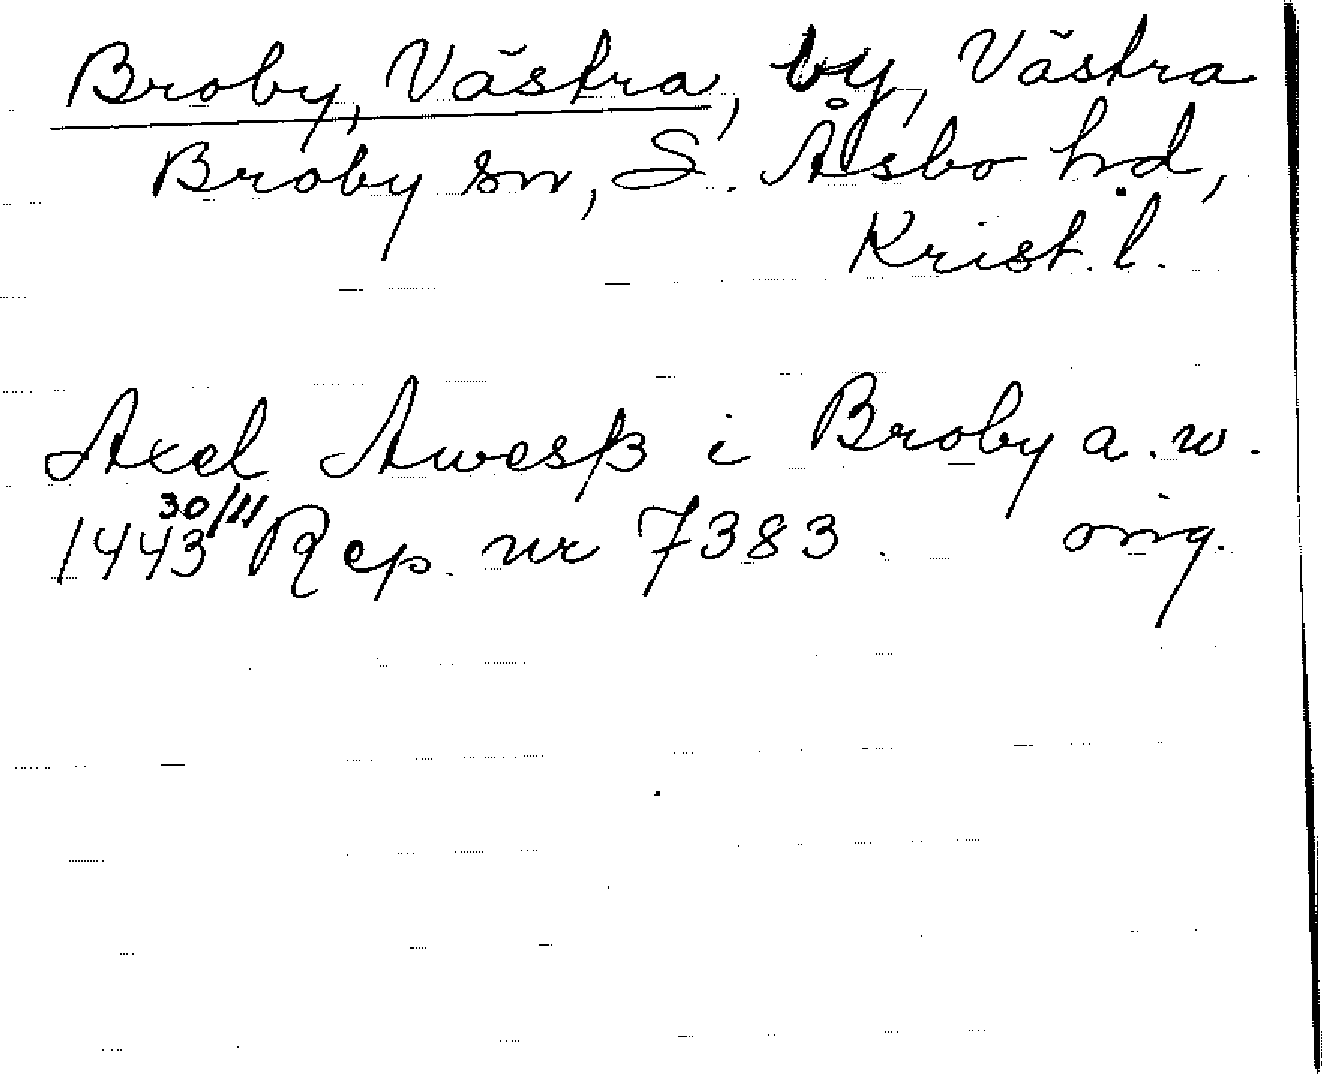 Broby, Västra, by, Västra
Broby sn, S. Åsbo hd,
Krist. l.
Axel Awesß i Broby a. w.
1443 30/11 Rep. nr 7383. orig.